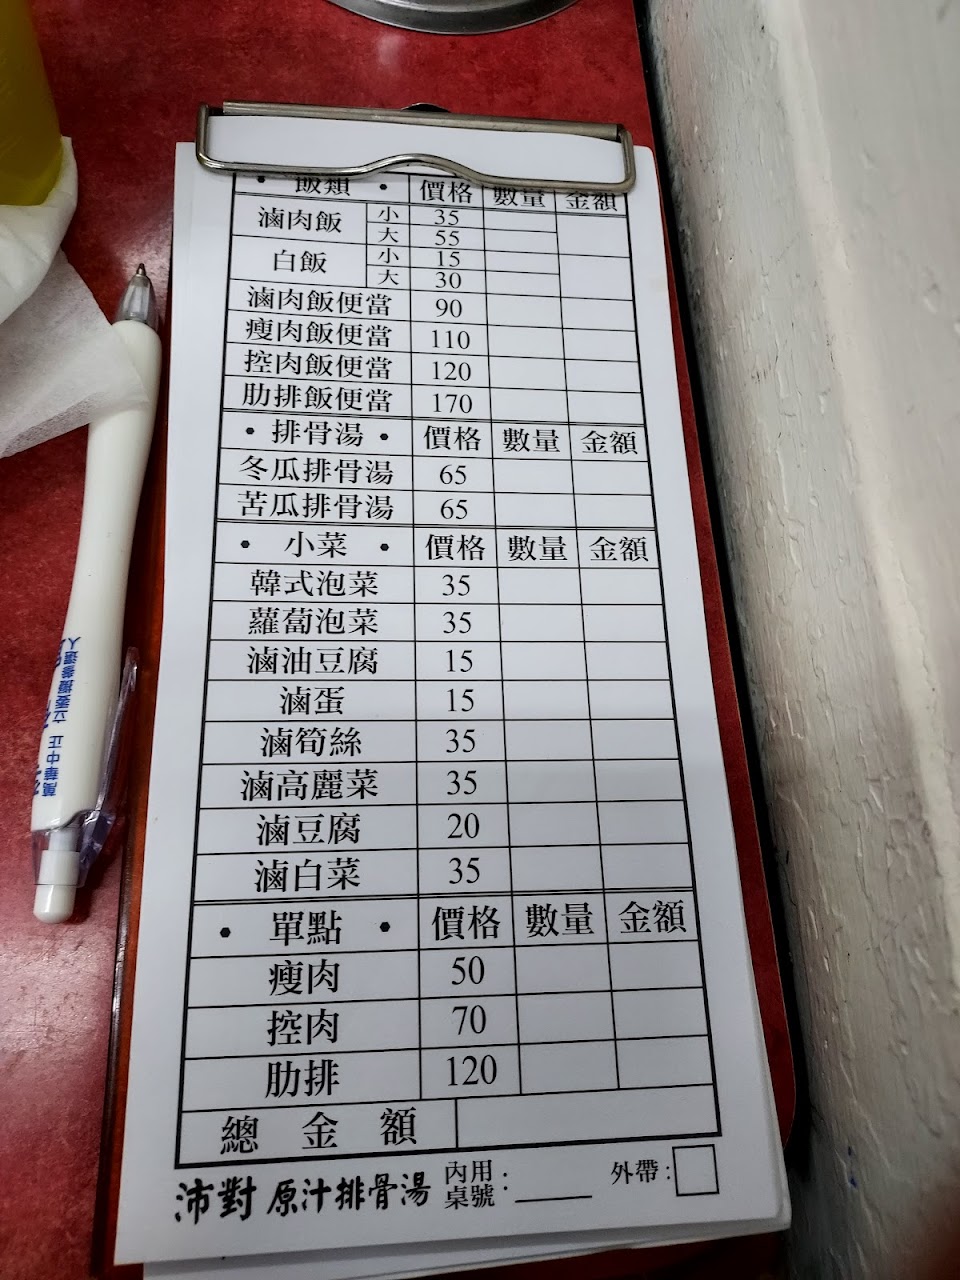 • 飯類 • 價格 數量 金額
滷肉飯 小 35
大 55
白飯 小 15
大 30
滷肉飯便當 90
瘦肉飯便當 110
控肉飯便當 120
肋排飯便當 170
• 排骨湯 • 價格 數量 金額
冬瓜排骨湯 65
苦瓜排骨湯 65
• 小菜 • 價格 數量 金額
韓式泡菜 35
蘿蔔泡菜 35
滷油豆腐 15
滷蛋 15
滷筍絲 35
滷高麗菜 35
滷豆腐 20
滷白菜 35
• 單點 • 價格 數量 金額
瘦肉 50
控肉 70
肋排 120
總金額
沛對 原汁排骨湯 內用桌號: 外帶:
萬華中正 立委擬參選人